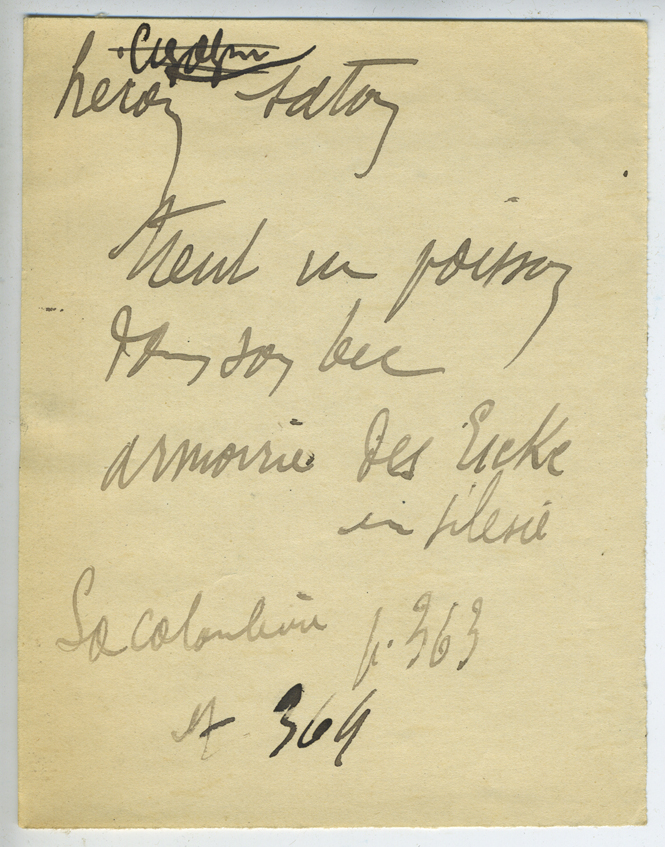 heron
tenant un poisson
dans son bec
armoirie des Eicke
in silesie
La colombiere p. 363
et 369